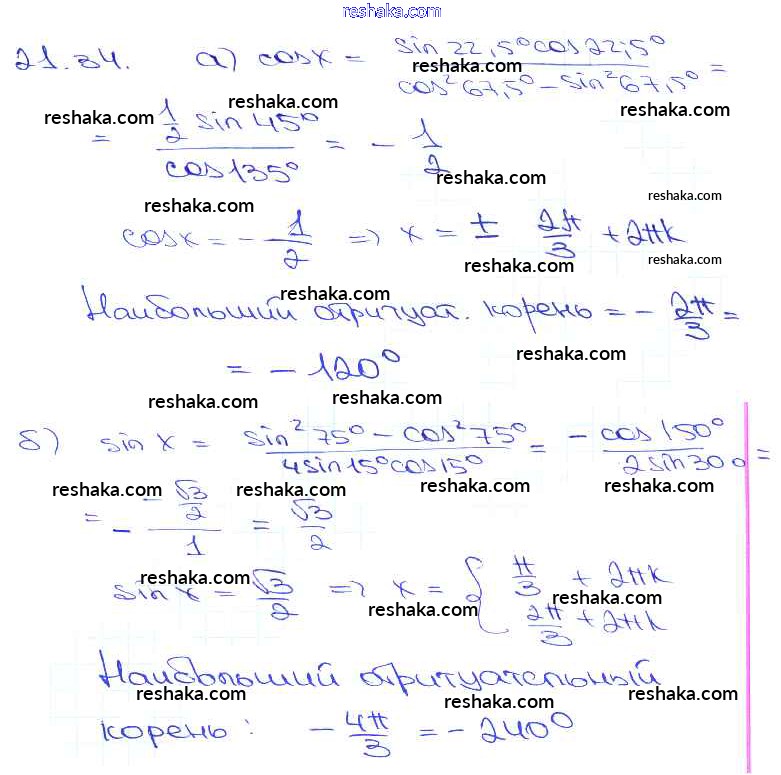 reshaka.com
21.34. а) cosx = sin22,5°cos22,5° / cos²67,5° - sin²67,5° =
reshaka.com reshaka.com reshaka.com
= 1/2 sin45° / cos135° = - 1/2
reshaka.com reshaka.com
reshaka.com reshaka.com
cosx = - 1/2 => x = ± 2π/3 + 2πk
reshaka.com reshaka.com
reshaka.com
Наибольший отрицат. корень = - 2π/3 =
reshaka.com
= - 120°
reshaka.com reshaka.com
б) sin x = sin²75° - cos²75° / 4sin15°cos15° = -cos150° / 2sin30° =
reshaka.com reshaka.com reshaka.com reshaka.com
= - -√3/2 / 1 = √3/2
reshaka.com reshaka.com
sin x = √3/2 => x = { π/3 + 2πk
reshaka.com reshaka.com
2π/3 + 2πk
Наибольший отрицательный
reshaka.com reshaka.com reshaka.com
корень: - 4π/3 = - 240°
reshaka.com reshaka.com